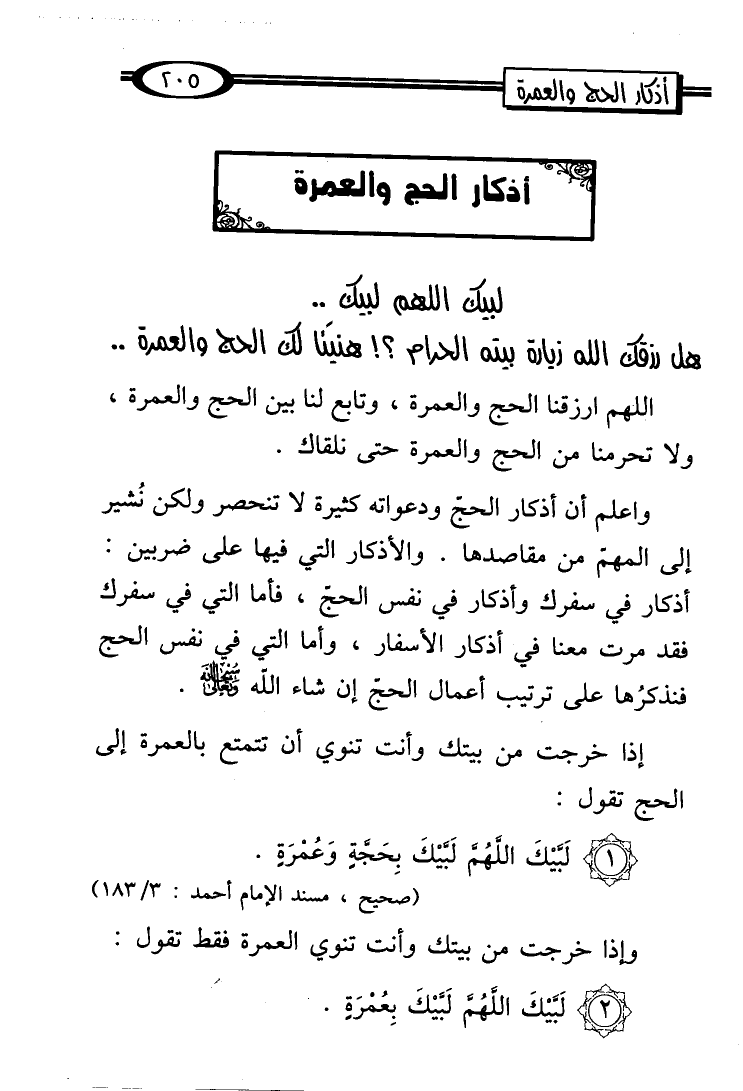 أذكار الحج والعمرة
٢٠٥
أذكار الحج والعمرة
لبيك اللهم لبيك ..
هل رزقك الله زيارة بيته الحرام ؟! هنيئًا لك الحج والعمرة ..
اللهم ارزقنا الحج والعمرة ، وتابع لنا بين الحج والعمرة ،
ولا تحرمنا من الحج والعمرة حتى نلقاك .
واعلم أن أذكار الحجّ ودعواته كثيرة لا تنحصر ولكن نُشير
إلى المهمّ من مقاصدها . والأذكار التي فيها على ضربين :
أذكار في سفرك وأذكار في نفس الحجّ ، فأما التي في سفرك
فقد مرت معنا في أذكار الأسفار ، وأما التي في نفس الحج
فنذكرُها على ترتيب أعمال الحجّ إن شاء اللّه سبحانه وتعالى .
إذا خرجت من بيتك وأنت تنوي أن تتمتع بالعمرة إلى
الحج تقول :
١ لَبَّيْكَ اللَّهُمَّ لَبَّيْكَ بِحَجَّةٍ وَعُمْرَةٍ .
(صحيح ، مسند الإمام أحمد : ١٨٣/٣)
وإذا خرجت من بيتك وأنت تنوي العمرة فقط تقول :
٢ لَبَّيْكَ اللَّهُمَّ لَبَّيْكَ بِعُمْرَةٍ .